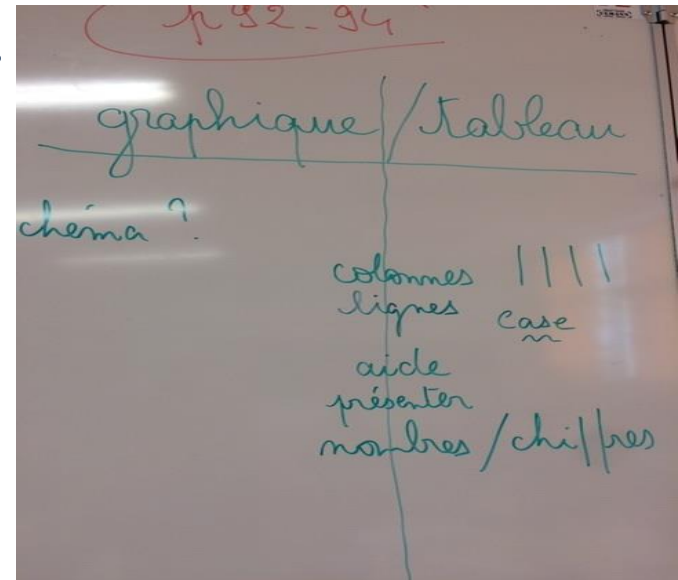 p 92-94
graphique / tableau
chéma ?
colonnes ||||
lignes case
aide
présenter
nombres / chiffres